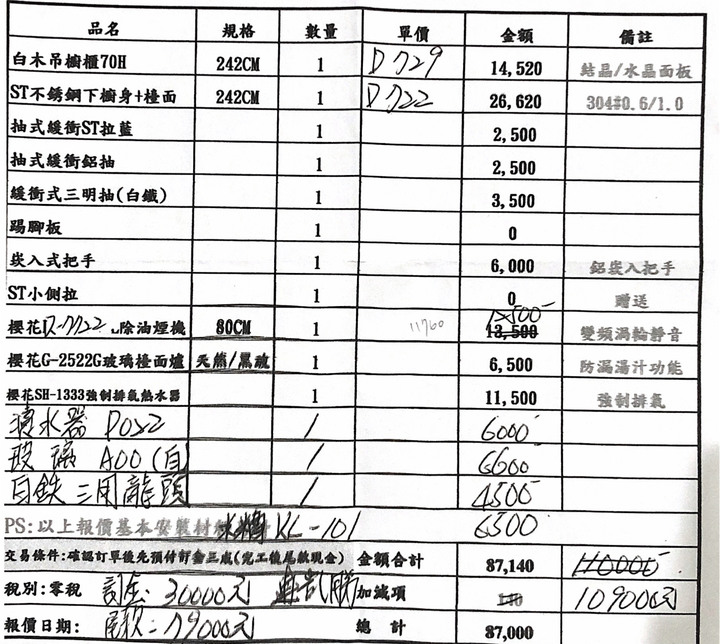 品名 規格 數量 單價 金額 備註
白木吊櫥櫃70H 242CM 1 D7229 14,520 結晶/水晶面板
ST不銹鋼下櫥身+檯面 242CM 1 D722 26,620 304#0.6/1.0
抽式緩衝ST拉藍 1 2,500
抽式緩衝鋁抽 1 2,500
緩衝式三明抽(白鐵) 1 3,500
踢腳板 1 0
崁入式把手 1 6,000 鋁崁入把手
ST小側拉 1 0 贈送
櫻花 除油煙機 80CM 1 11760 13,500 變頻渦輪靜音
櫻花G-2522G玻璃檯面爐 天然/黑玻 1 6,500 防漏湯汁功能
櫻花SH-1333強制排氣熱水器 1 11,500 強制排氣
淨水器 1 6000
玻璃 A00 (白 1 6600
白鐵 三用龍頭 1 4500
PS:以上報價基本安裝材 KL-101 6500
交易條件:確認訂單後先預付訂金三成(完工後尾款現金) 金額合計 87,140 110000
稅別:零稅 訂金: 30000元 加減項 140 109000元
報價日期: 尾款: 79000元 總計 87,000